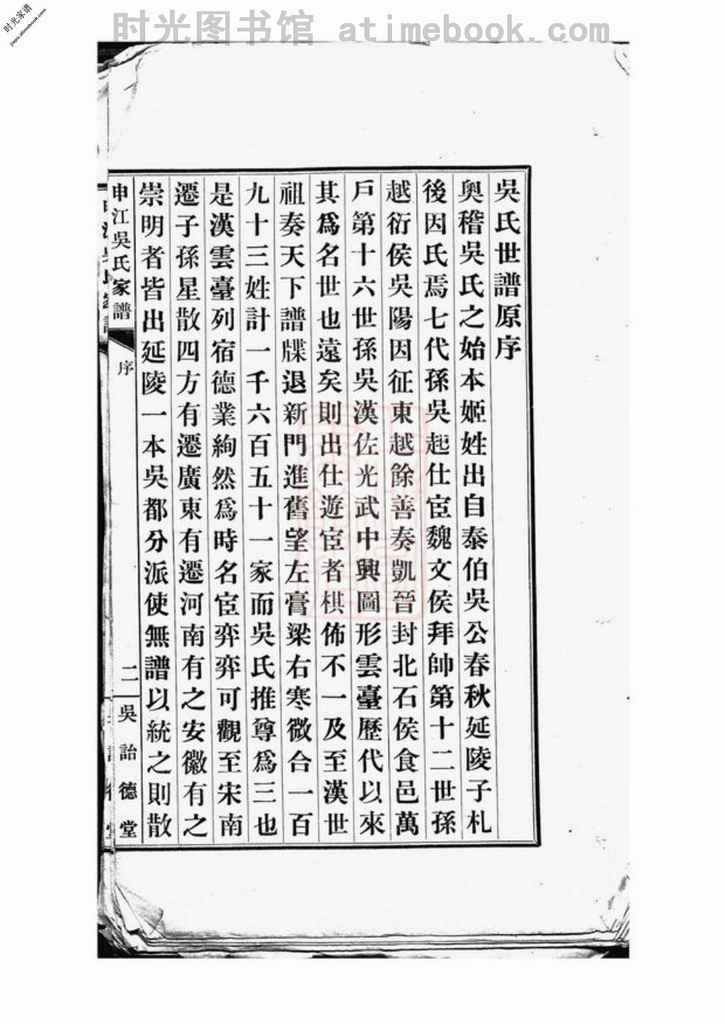 时光图书馆 atimebook.com
时光家谱
吳氏世譜原序
奧稽吳氏之始本姬姓出自泰伯吳公春秋延陵子札
後因氏焉七代孫吳起仕宦魏文侯拜帥第十二世孫
越衍侯吳陽因征東越餘善奏凱晉封北石侯食邑萬
戶第十六世孫吳漢佐光武中興圖形雲臺歷代以來
其爲名世也遠矣則出仕遊宦者棋佈不一及至漢世
祖奏天下譜牒退新門進舊望左膏梁右寒微合一百
九十三姓計一千六百五十一家而吳氏推尊爲三也
是漢雲臺列宿德業絢然爲時名宦弈弈可觀至宋南
遷子孫星散四方有遷廣東有遷河南有之安徽有之
崇明者皆出延陵一本吳都分派使無譜以統之則散
申江吳氏家譜 序 二 吳詒德堂